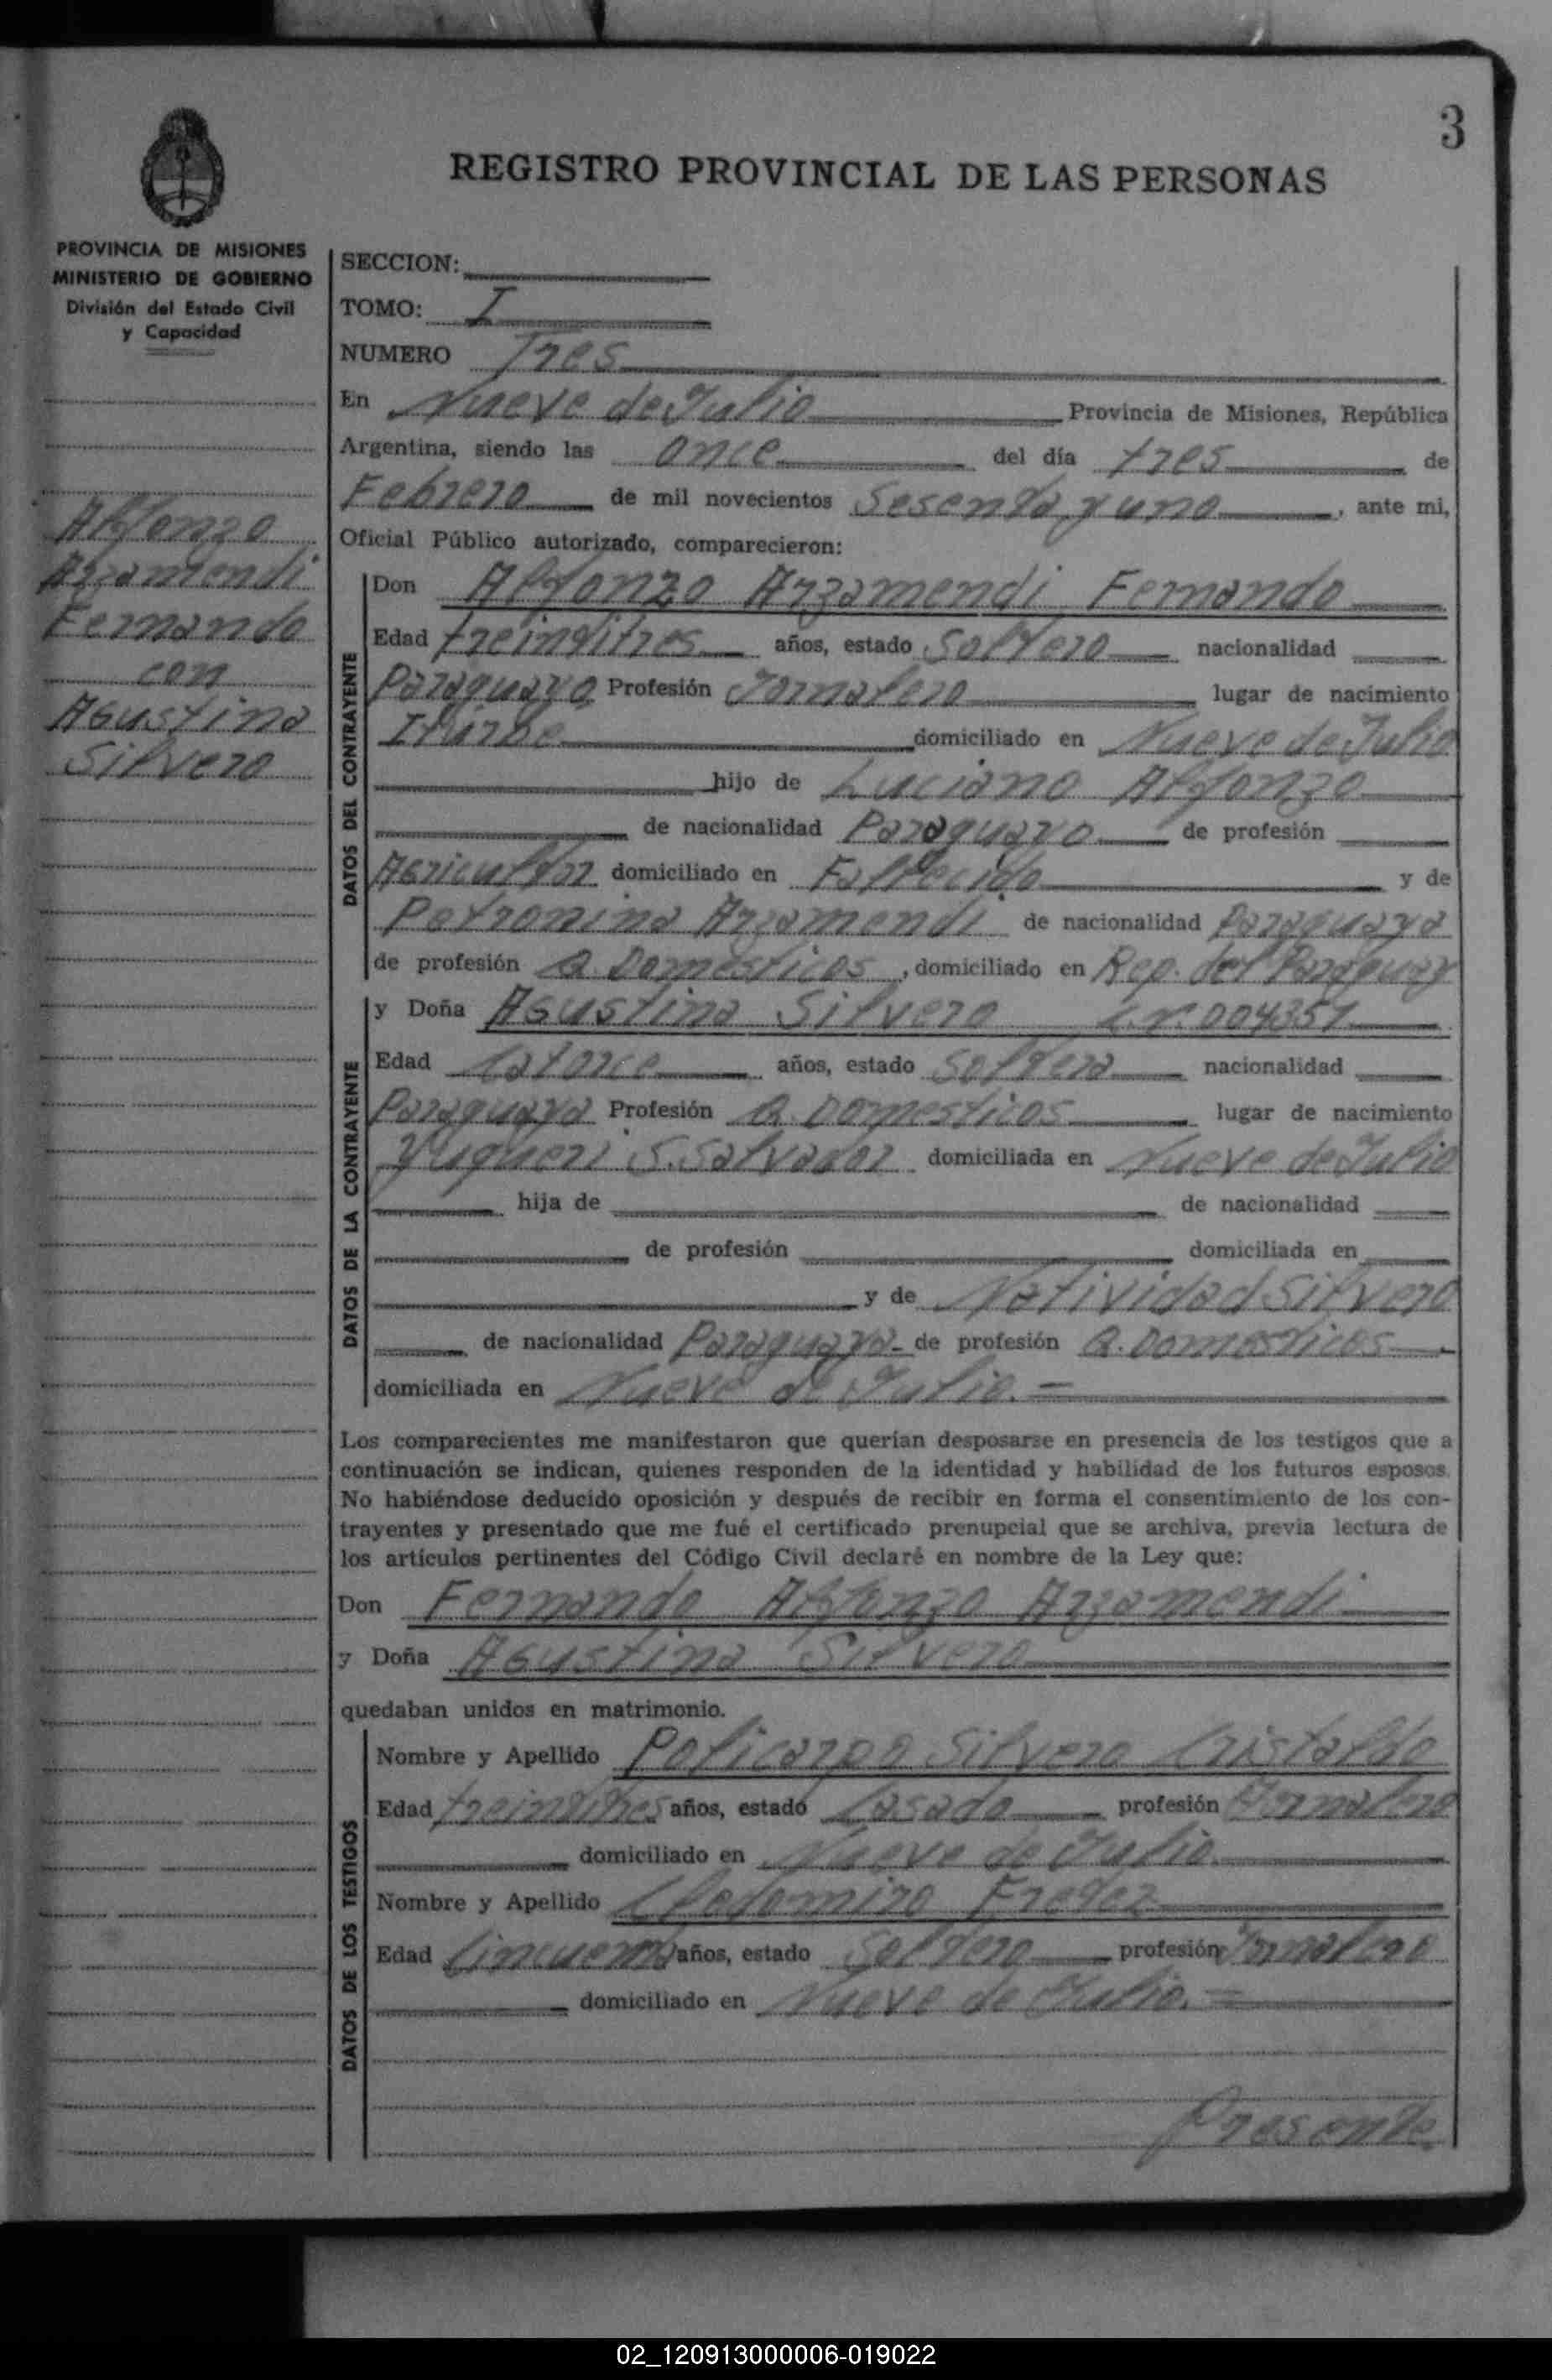 3
REGISTRO PROVINCIAL DE LAS PERSONAS
PROVINCIA DE MISIONES
MINISTERIO DE GOBIERNO
División del Estado Civil
y Capacidad
Alfonzo
Arzamendi
Fernando
con
Agustina
Silvero
SECCION:
TOMO: I
NUMERO Tres
En Nueve de Julio Provincia de Misiones, República
Argentina, siendo las once del día tres de
Febrero de mil novecientos sesenta y uno, ante mi,
Oficial Público autorizado, comparecieron:
DATOS DEL CONTRAYENTE
Don Alfonzo Arzamendi Fernando
Edad treintitres años, estado Soltero nacionalidad
Paraguayo Profesión Jornalero lugar de nacimiento
Iturbe domiciliado en Nueve de Julio
hijo de Luciano Alfonzo
de nacionalidad Paraguayo de profesión
Agricultor domiciliado en Fallecido y de
Petronina Arzamendi de nacionalidad Paraguaya
de profesión Q. Domesticos, domiciliado en Rep. del Paraguay
DATOS DE LA CONTRAYENTE
y Doña Agustina Silvero 004351
Edad Catorce años, estado Soltera nacionalidad
Paraguaya Profesión Q. Domesticos lugar de nacimiento
Yuqueri S. Salvador domiciliada en Nueve de Julio
hija de de nacionalidad
de profesión domiciliada en
y de Natividad Silvero
de nacionalidad Paraguaya- de profesión Q. Domesticos
domiciliada en Nueve de Julio. =
Los comparecientes me manifestaron que querían desposarse en presencia de los testigos que a
continuación se indican, quienes responden de la identidad y habilidad de los futuros esposos.
No habiéndose deducido oposición y después de recibir en forma el consentimiento de los con-
trayentes y presentado que me fué el certificado prenupcial que se archiva, previa lectura de
los artículos pertinentes del Código Civil declaré en nombre de la Ley que:
Don Fernando Alfonzo Arzamendi
y Doña Agustina Silvero
quedaban unidos en matrimonio.
DATOS DE LOS TESTIGOS
Nombre y Apellido Policarpo Silvero Cristaldo
Edad treintitres años, estado Casado profesión Jornalero
domiciliado en Nueve de Julio.
Nombre y Apellido Clodomiro Fretez
Edad Cincuenta años, estado Soltero profesión Jornalero
domiciliado en Nueve de Julio. =
Presente
02_120913000006-019022